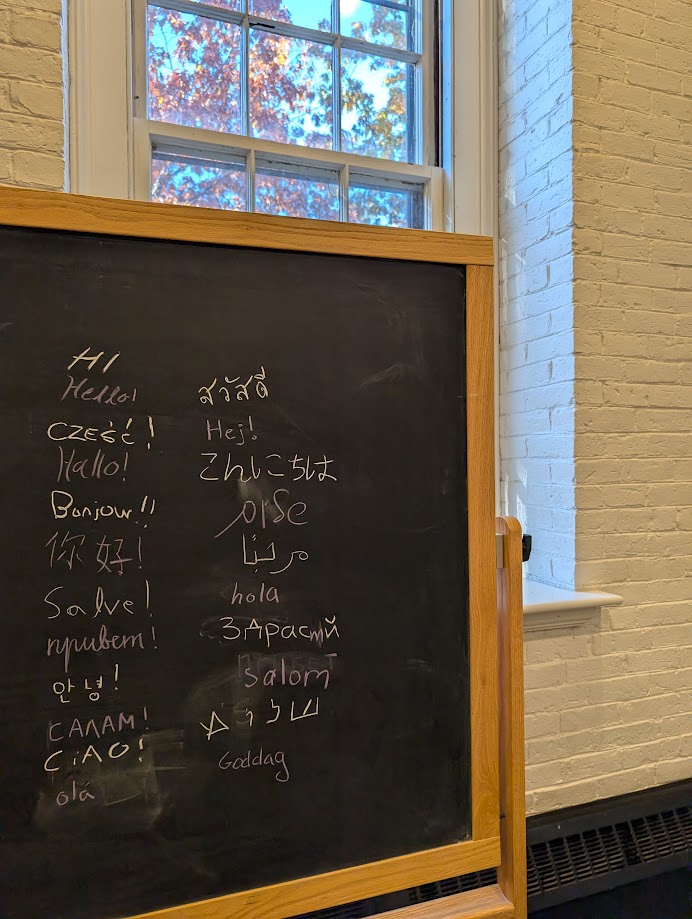 HI
Hello!
CZEŚĆ!
Hallo!
Bonjour!!
你好!
Salve!
привет!
안녕!
САЛАМ!
ÇiAO!
olá
สวัสดี
Hej!
こんにちは
مرحبًا
hola
Здрасти
Salom
Goddag